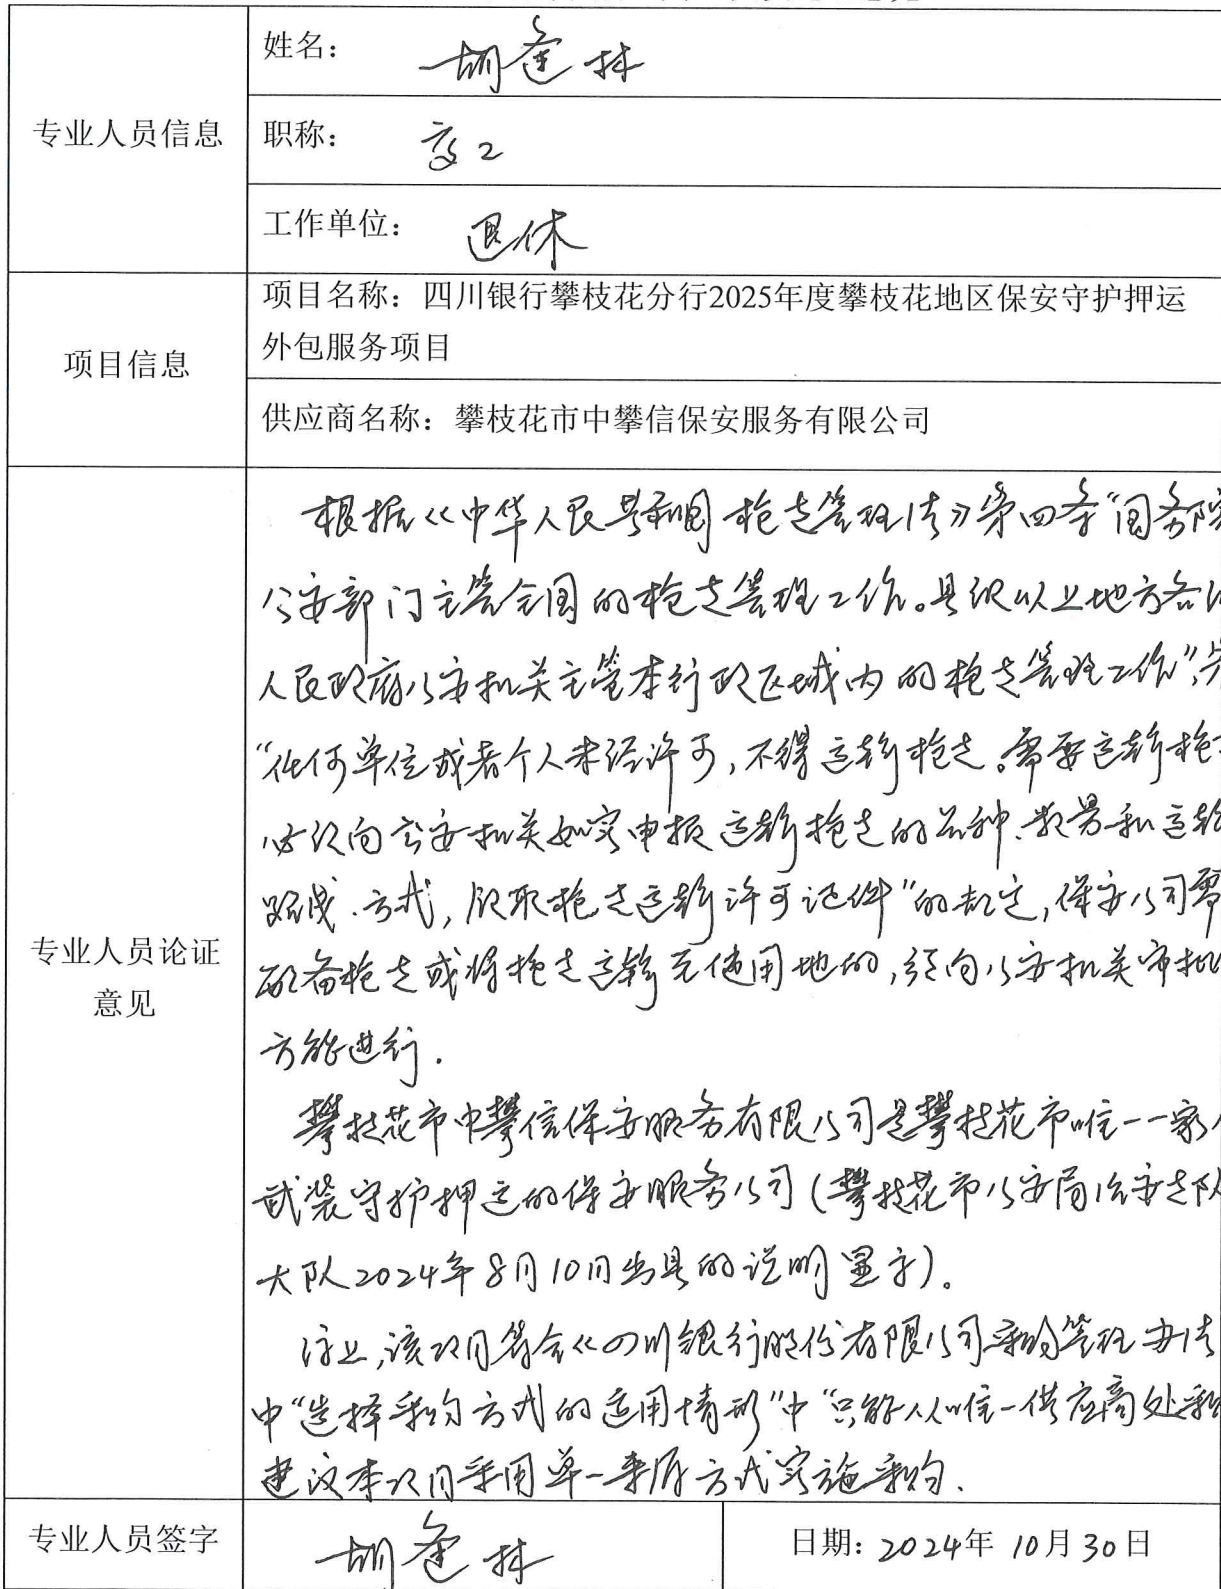 姓名： 胡逢林
专业人员信息
职称： 高工
工作单位： 退休
项目信息
项目名称：四川银行攀枝花分行2025年度攀枝花地区保安守护押运
外包服务项目
供应商名称：攀枝花市中攀信保安服务有限公司
专业人员论证
意见
根据《中华人民共和国枪支管理法》第四条“国务院
公安部门主管全国的枪支管理工作。县级以上地方各
人民政府公安机关主管本行政区域内的枪支管理工作”，
“任何单位或者个人未经许可，不得运输枪支。需要运输枪
必须向公安机关如实申报运输枪支的品种、数量和运输
路线、方式，领取枪支运输许可证件”的规定，保安公司需
配备枪支或将枪支运输至使用地的，须向公安机关审批
方能进行.
攀枝花市中攀信保安服务有限公司是攀枝花市唯一一家
武装守护押运的保安服务公司（攀枝花市公安局治安支队
大队2024年8月10日出具的说明显示）。
综上，该项目符合《四川银行股份有限公司采购管理办法
中“选择采购方式的适用情形”中“只能从唯一供应商处采购
建议本项目采用单一来源方式实施采购.
专业人员签字 胡逢林 日期：2024年10月30日